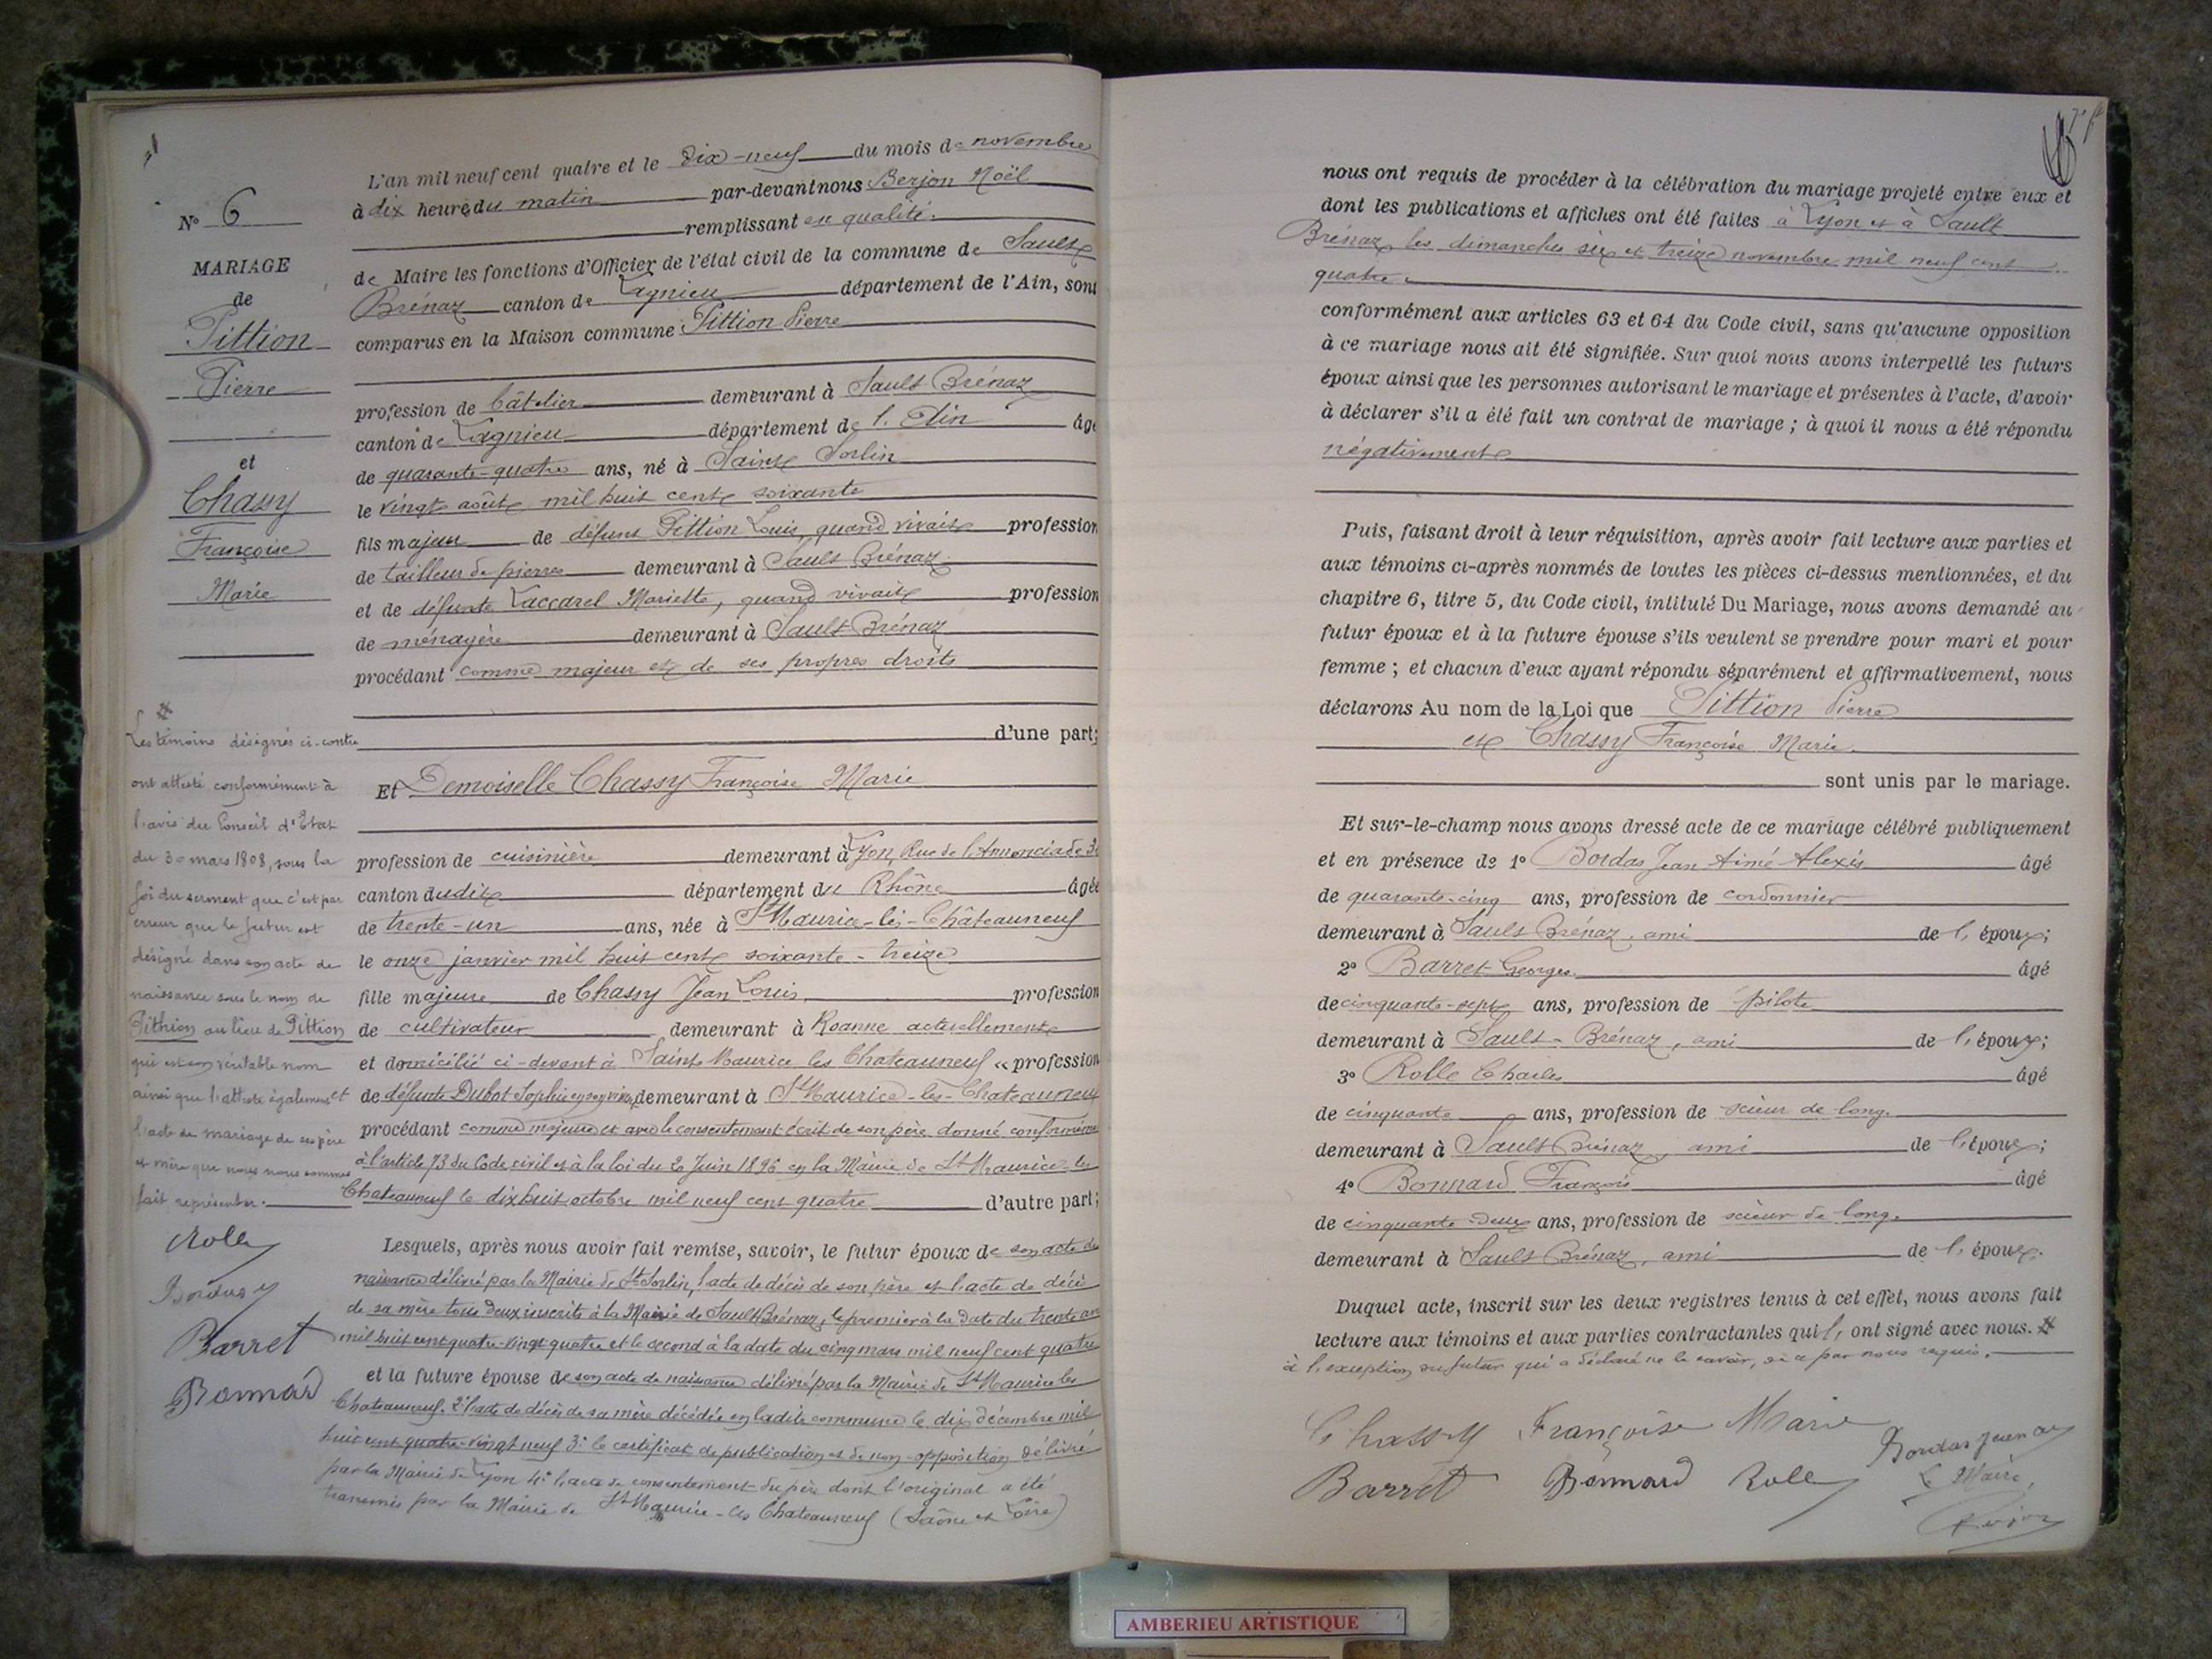 N° 6
MARIAGE
de
Pittion
Pierre
et
Chassy
Françoise
Marie
Les témoins désignés ci-contre
ont attesté conformément à
l'avis du Conseil d'Etat
du 30 mars 1808, sous la
foi du serment que c'est par
erreur que le futur est
désigné dans son acte de
naissance sous le nom de
Pithion au lieu de Pittion
qui est son véritable nom
ainsi que l'atteste également
l'acte de mariage de ses père
et mère que nous nous sommes
fait représenter.
Rolle
Bordas
Barret
Bonnard
L'an mil neuf cent quatre et le dix-neuf du mois de novembre
à dix heures du matin par-devant nous Berjon Noël
remplissant en qualité
de Maire les fonctions d'Officier de l'état civil de la commune de Sault
Brénaz canton de Lagnieu département de l'Ain, sont
comparus en la Maison commune Pittion Pierre
profession de bâtelier demeurant à Sault Brénaz
canton de Lagnieu département de l'Ain âgé
de quarante-quatre ans, né à Saint Sorlin
le vingt août mil huit cent soixante
fils majeur de défunt Pittion Louis quand vivait profession
de tailleur de pierres demeurant à Sault Brénaz
et de défunte Laccarel Mariette, quand vivait profession
de ménagère demeurant à Sault Brénaz
procédant comme majeur et de ses propres droits
d'une part;
Et Demoiselle Chassy Françoise Marie
profession de cuisinière demeurant à Lyon, Rue de l'Annonciade
canton dudit département du Rhône âgée
de trente-un ans, née à St Maurice-lès-Châteauneuf
le onze janvier mil huit cent soixante-treize
fille majeure de Chassy Jean Louis profession
de cultivateur demeurant à Roanne actuellement
et domicilié ci-devant à Saint Maurice les Chateauneuf « profession
et de défunte Dubot Sophie demeurant à St Maurice-les-Chateauneuf
procédant comme majeure et avec le consentement écrit de son père donné conformém
à l'article 73 du Code civil et à la loi du 20 Juin 1896 en la Mairie de St Maurice les
Chateauneuf le dix huit octobre mil neuf cent quatre d'autre part;
Lesquels, après nous avoir fait remise, savoir, le futur époux de son acte de
naissance délivré par la Mairie de St Sorlin, l'acte de décès de son père et l'acte de décès
de sa mère tous deux inscrits à la Mairie de Sault Brénaz, le premier à la date du trente
mil huit cent quatre-vingt quatre et le second à la date du cinq mars mil neuf cent quatre
et la future épouse de son acte de naissance délivré par la Mairie de St Maurice les
Chateauneuf. 2° l'acte de décès de sa mère décédée en ladite commune le dix décembre mil
huit cent quatre-vingt neuf 3° le certificat de publication et de non-opposition délivré
par la Mairie de Lyon 4° l'acte de consentement du père dont l'original a été
transmis par la Mairie de St Maurice-les Chateauneuf (Saône et Loire)
nous ont requis de procéder à la célébration du mariage projeté entre eux et
dont les publications et affiches ont été faites à Lyon et à Sault
Brénaz les dimanches six et treize novembre mil neuf cent
quatre
conformément aux articles 63 et 64 du Code civil, sans qu'aucune opposition
à ce mariage nous ait été signifiée. Sur quoi nous avons interpellé les futurs
époux ainsi que les personnes autorisant le mariage et présentes à l'acte, d'avoir
à déclarer s'il a été fait un contrat de mariage ; à quoi il nous a été répondu
négativement
Puis, faisant droit à leur réquisition, après avoir fait lecture aux parties et
aux témoins ci-après nommés de toutes les pièces ci-dessus mentionnées, et du
chapitre 6, titre 5, du Code civil, intitulé Du Mariage, nous avons demandé au
futur époux et à la future épouse s'ils veulent se prendre pour mari et pour
femme ; et chacun d'eux ayant répondu séparément et affirmativement, nous
déclarons Au nom de la Loi que Pittion Pierre
et Chassy Françoise Marie
sont unis par le mariage.
Et sur-le-champ nous avons dressé acte de ce mariage célébré publiquement
et en présence de 1° Bordas Jean Aimé Alexis âgé
de quarante-cinq ans, profession de cordonnier
demeurant à Sault Brénaz, ami de l'époux;
2° Barret Georges âgé
de cinquante-sept ans, profession de pilote
demeurant à Sault-Brénaz, ami de l'époux;
3° Rolle Charles âgé
de cinquante ans, profession de scieur de long.
demeurant à Sault Brénaz, ami de l'époux;
4° Bonnard François âgé
de cinquante-deux ans, profession de scieur de long.
demeurant à Sault Brénaz, ami de l'époux.
Duquel acte, inscrit sur les deux registres tenus à cet effet, nous avons fait
lecture aux témoins et aux parties contractantes qui ont signé avec nous.
à l'exception du futur qui a déclaré ne le savoir, de ce par nous requis.
Chassy Françoise Marie
Bordas Jean
Barret Bonnard Rolle
Le Maire,
Berjon
AMBERIEU ARTISTIQUE